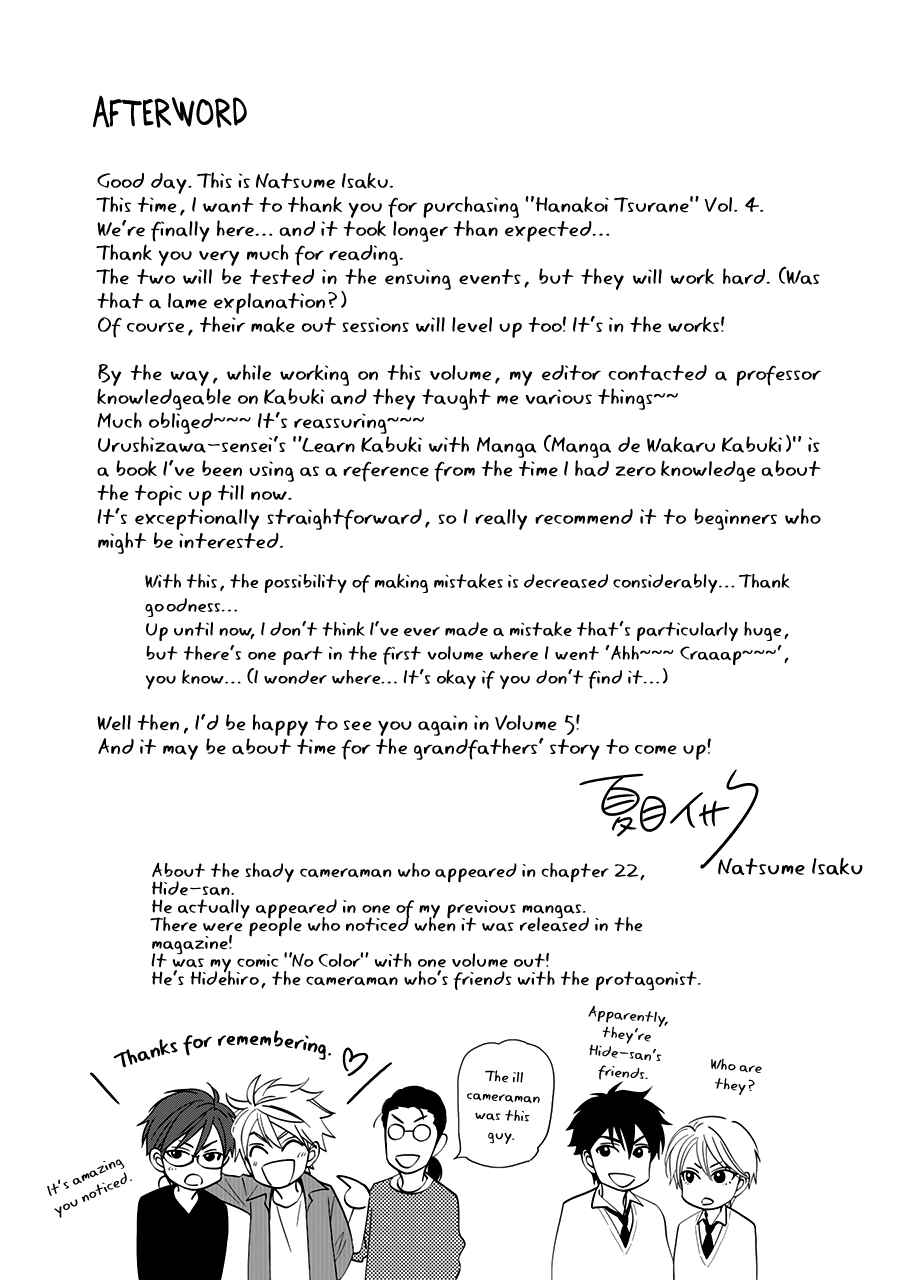 AFTERWORD
Good day. This is Natsume Isaku.
This time, I want to thank you for purchasing "Hanakoi Tsurane" Vol. 4.
We're finally here... and it took longer than expected...
Thank you very much for reading.
The two will be tested in the ensuing events, but they will work hard. (Was
that a lame explanation?)
Of course, their make out sessions will level up too! It's in the works!
By the way, while working on this volume, my editor contacted a professor
knowledgeable on Kabuki and they taught me various things~~
Much obliged~~~ It's reassuring~~~
Urushizawa-sensei's "Learn Kabuki with Manga (Manga de Wakaru Kabuki)" is
a book I've been using as a reference from the time I had zero knowledge about
the topic up till now.
It's exceptionally straightforward, so I really recommend it to beginners who
might be interested.
With this, the possibility of making mistakes is decreased considerably... Thank
goodness...
Up until now, I don't think I've ever made a mistake that's particularly huge,
but there's one part in the first volume where I went 'Ahh~~~ Craaap~~~',
you know... (I wonder where... It's okay if you don't find it...)
Well then, I'd be happy to see you again in Volume 5!
And it may be about time for the grandfathers' story to come up!
夏目イサク
Natsume Isaku
About the shady cameraman who appeared in chapter 22,
Hide-san.
He actually appeared in one of my previous mangas.
There were people who noticed when it was released in the
magazine!
It was my comic "No Color" with one volume out!
He's Hidehiro, the cameraman who's friends with the protagonist.
Thanks for remembering. ♡
It's amazing
you noticed.
The ill
cameraman
was this
guy.
Apparently,
they're
Hide-san's
friends.
Who are
they?